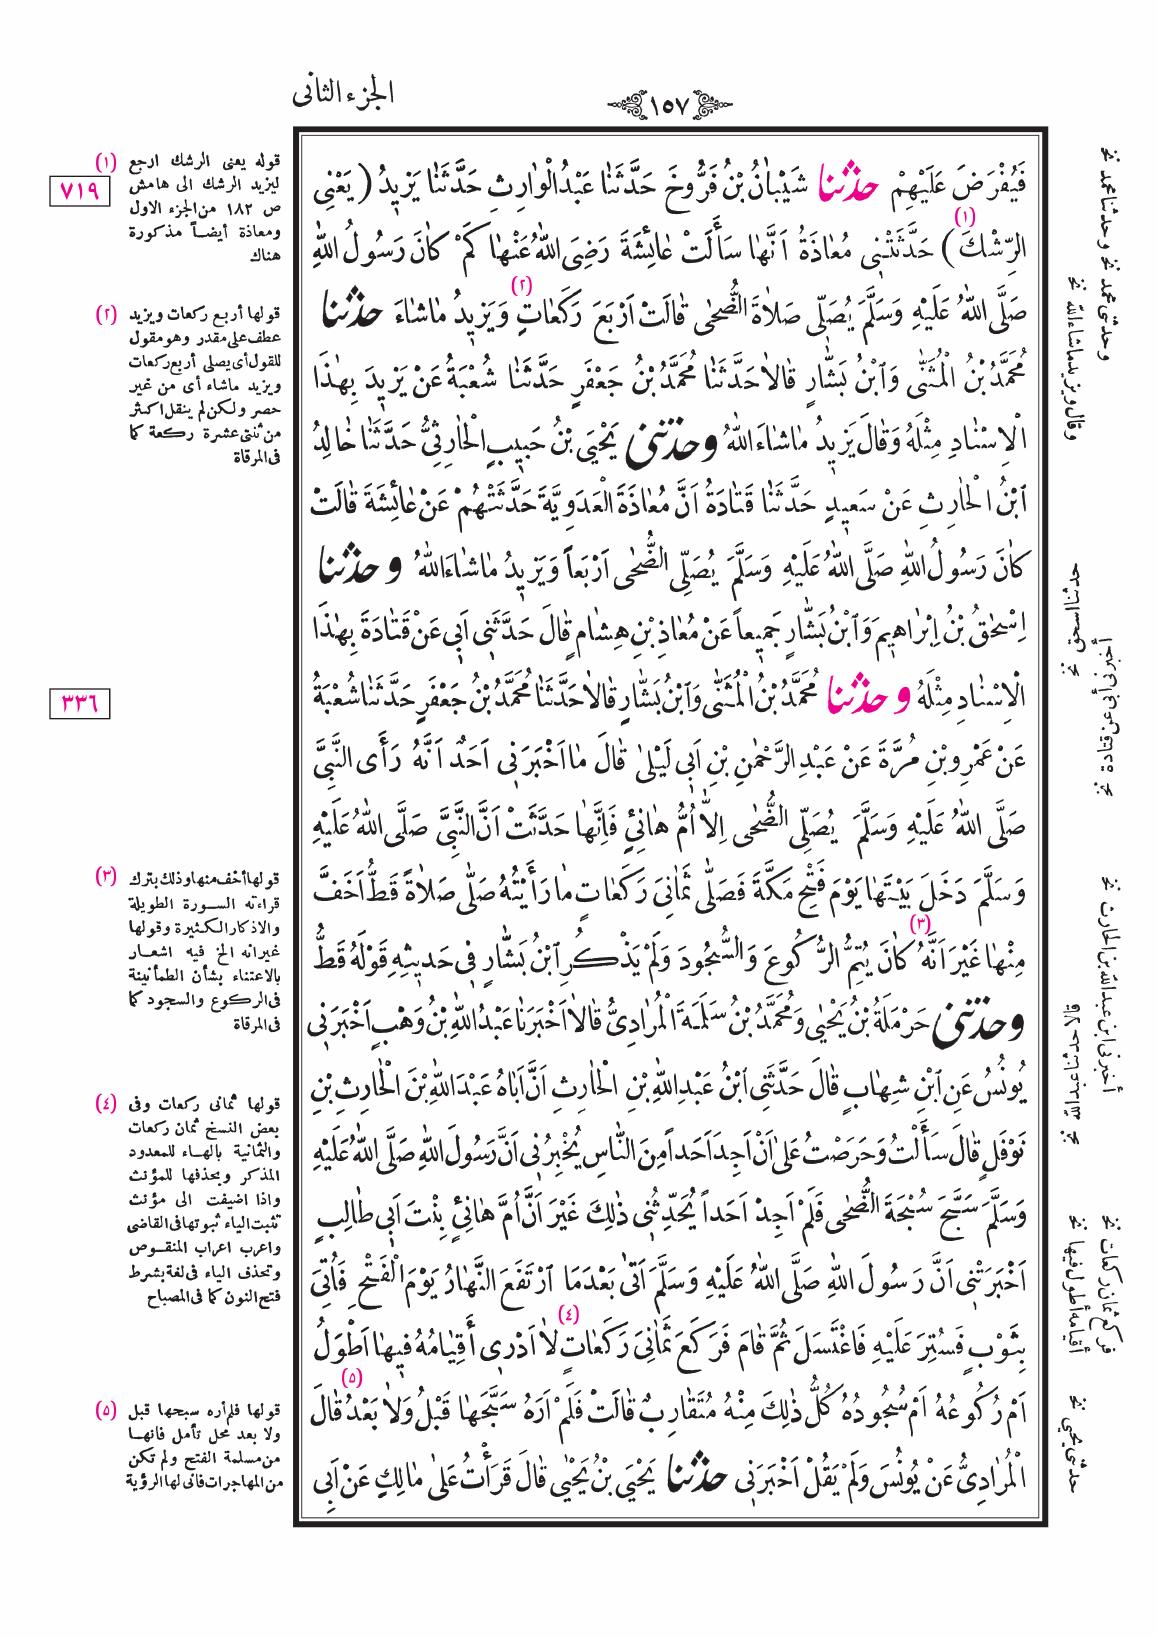 الجزء الثانى
١٥٧
فَيُفْرَضَ عَلَيْهِمْ حدثنا شَيْبَانُ بْنُ فَرُّوخَ حَدَّثَنَا عَبْدُالْوَارِثِ حَدَّثَنَا يَزِيدُ ( يَعْنِى
الرِّشْكَ ) (١) حَدَّثَتْنِى مُعَاذَةُ اَنَّهَا سَأَلَتْ عَائِشَةَ رَضِىَاللهُ عَنْهَا كَمْ كَانَ رَسُولُ اللهِ
صَلَّى اللهُ عَلَيْهِ وَسَلَّمَ يُصَلِّى صَلَاةَ الضُّحٰى قَالَتْ اَرْبَعَ رَكَعَاتٍ (٢) وَيَزِيدُ مَاشَاءَ حدثنا
مُحَمَّدُ بْنُ الْمُثَنّٰى وَابْنُ بَشَّارٍ قَالَا حَدَّثَنَا مُحَمَّدُ بْنُ جَعْفَرٍ حَدَّثَنَا شُعْبَةُ عَنْ يَزِيدَ بِهٰذَا
الْاِسْنَادِ مِثْلَهُ وَقَالَ يَزِيدُ مَاشَاءَ اللهُ وحدثنى يَحْيَى بْنُ حَبِيبٍ الْحَارِثِىُّ حَدَّثَنَا خَالِدُ
ابْنُ الْحَارِثِ عَنْ سَعِيدٍ حَدَّثَنَا قَتَادَةُ اَنَّ مُعَاذَةَ الْعَدَوِيَّةَ حَدَّثَتْهُمْ عَنْ عَائِشَةَ قَالَتْ
كَانَ رَسُولُ اللهِ صَلَّى اللهُ عَلَيْهِ وَسَلَّمَ يُصَلِّى الضُّحٰى اَرْبَعاً وَيَزِيدُ مَاشَاءَ اللهُ وحدثنا
اِسْحٰقُ بْنُ اِبْرَاهِيمَ وَابْنُ بَشَّارٍ جَمِيعاً عَنْ مُعَاذِ بْنِ هِشَامٍ قَالَ حَدَّثَنِى اَبِى عَنْ قَتَادَةَ بِهٰذَا
الْاِسْنَادِ مِثْلَهُ وحدثنا مُحَمَّدُ بْنُ الْمُثَنّٰى وَابْنُ بَشَّارٍ قَالَا حَدَّثَنَا مُحَمَّدُ بْنُ جَعْفَرٍ حَدَّثَنَا شُعْبَةُ
عَنْ عَمْرِو بْنِ مُرَّةَ عَنْ عَبْدِ الرَّحْمٰنِ بْنِ اَبِى لَيْلٰى قَالَ مَا اَخْبَرَنِى اَحَدٌ اَنَّهُ رَأَى النَّبِىَّ
صَلَّى اللهُ عَلَيْهِ وَسَلَّمَ يُصَلِّى الضُّحٰى اِلَّا اُمُّ هَانِئٍ فَاِنَّهَا حَدَّثَتْ اَنَّ النَّبِىَّ صَلَّى اللهُ عَلَيْهِ
وَسَلَّمَ دَخَلَ بَيْتَهَا يَوْمَ فَتْحِ مَكَّةَ فَصَلَّى ثَمَانِىَ رَكَعَاتٍ مَا رَأَيْتُهُ صَلَّى صَلَاةً قَطُّ اَخَفَّ
مِنْهَا غَيْرَ اَنَّهُ (٣) كَانَ يُتِمُّ الرُّكُوعَ وَالسُّجُودَ وَلَمْ يَذْكُرِ ابْنُ بَشَّارٍ فِى حَدِيثِهِ قَوْلَهُ قَطُّ
وحدثنى حَرْمَلَةُ بْنُ يَحْيٰى وَمُحَمَّدُ بْنُ سَلَمَةَ الْمُرَادِىُّ قَالَا اَخْبَرَنَا عَبْدُ اللهِ بْنُ وَهْبٍ اَخْبَرَنِى
يُونُسُ عَنِ ابْنِ شِهَابٍ قَالَ حَدَّثَنِى ابْنُ عَبْدِ اللهِ بْنِ الْحَارِثِ اَنَّ اَبَاهُ عَبْدَ اللهِ بْنَ الْحَارِثِ بْنِ
نَوْفَلٍ قَالَ سَأَلْتُ وَحَرَصْتُ عَلٰى اَنْ اَجِدَ اَحَداً مِنَ النَّاسِ يُخْبِرُنِى اَنَّ رَسُولَ اللهِ صَلَّى اللهُ عَلَيْهِ
وَسَلَّمَ سَبَّحَ سُبْحَةَ الضُّحٰى فَلَمْ اَجِدْ اَحَداً يُحَدِّثُنِى ذٰلِكَ غَيْرَ اَنَّ اُمَّ هَانِئٍ بِنْتَ اَبِى طَالِبٍ
اَخْبَرَتْنِى اَنَّ رَسُولَ اللهِ صَلَّى اللهُ عَلَيْهِ وَسَلَّمَ اَتَى بَعْدَمَا ارْتَفَعَ النَّهَارُ يَوْمَ الْفَتْحِ فَاُتِىَ
بِثَوْبٍ فَسُتِرَ عَلَيْهِ فَاغْتَسَلَ ثُمَّ قَامَ فَرَكَعَ ثَمَانِىَ رَكَعَاتٍ (٤) لَا اَدْرِى أَقِيَامُهُ فِيهَا اَطْوَلُ
اَمْ رُكُوعُهُ اَمْ سُجُودُهُ كُلُّ ذٰلِكَ مِنْهُ مُتَقَارِبٌ قَالَتْ فَلَمْ اَرَهُ سَبَّحَهَا قَبْلُ وَلَا بَعْدُ (٥) قَالَ
الْمُرَادِىُّ عَنْ يُونُسَ وَلَمْ يَقُلْ اَخْبَرَنِى حدثنا يَحْيَى بْنُ يَحْيٰى قَالَ قَرَأْتُ عَلٰى مَالِكٍ عَنْ اَبِى
٧١٩
٣٣٦
(١) قوله يعنى الرشك ارجع
ليزيد الرشك الى هامش
ص ١٨٢ من الجزء الاول
ومعاذة أيضاً مذكورة
هناك
(٢) قولها أربع ركعات ويزيد
عطف على مقدر وهو مقول
للقول أى يصلى أربع ركعات
ويزيد ماشاء أى من غير
حصر ولكن لم ينقل اكثر
من ثنتى عشرة ركعة كما
فى المرقاة
(٣) قولها أخف منها وذلك بترك
قراءته السورة الطويلة
والاذكار الكثيرة وقولها
غير انه الخ فيه اشعار
بالاعتناء بشأن الطمأنينة
فى الركوع والسجود كما
فى المرقاة
(٤) قولها ثمانى ركعات وفى
بعض النسخ ثمان ركعات
والثمانية بالهاء للمعدود
المذكر وبحذفها للمؤنث
واذا اضيفت الى مؤنث
تثبت الياء ثبوتها فى القاضى
واعرب اعراب المنقوص
وتحذف الياء فى لغة بشرط
فتح النون كما فى المصباح
(٥) قولها فلم أره سبحها قبل
ولا بعد محل تأمل فانها
من مسلمة الفتح ولم تكن
من المهاجرات فانى لها الرؤية
وحدثنى محمد نخ وحدثنا محمد نخ
وقال ويزيد ماشاء الله نخ
حدثنا اسحق نخ
أخبرنى أبى عن قتادة نخ
أخبرنى ابن عبد الله بن الحارث نخ
قالا حدثنا عبد الله نخ
فركع ثمان ركعات نخ
أقيامه أطول فيها نخ
حدثنى يحيى نخ